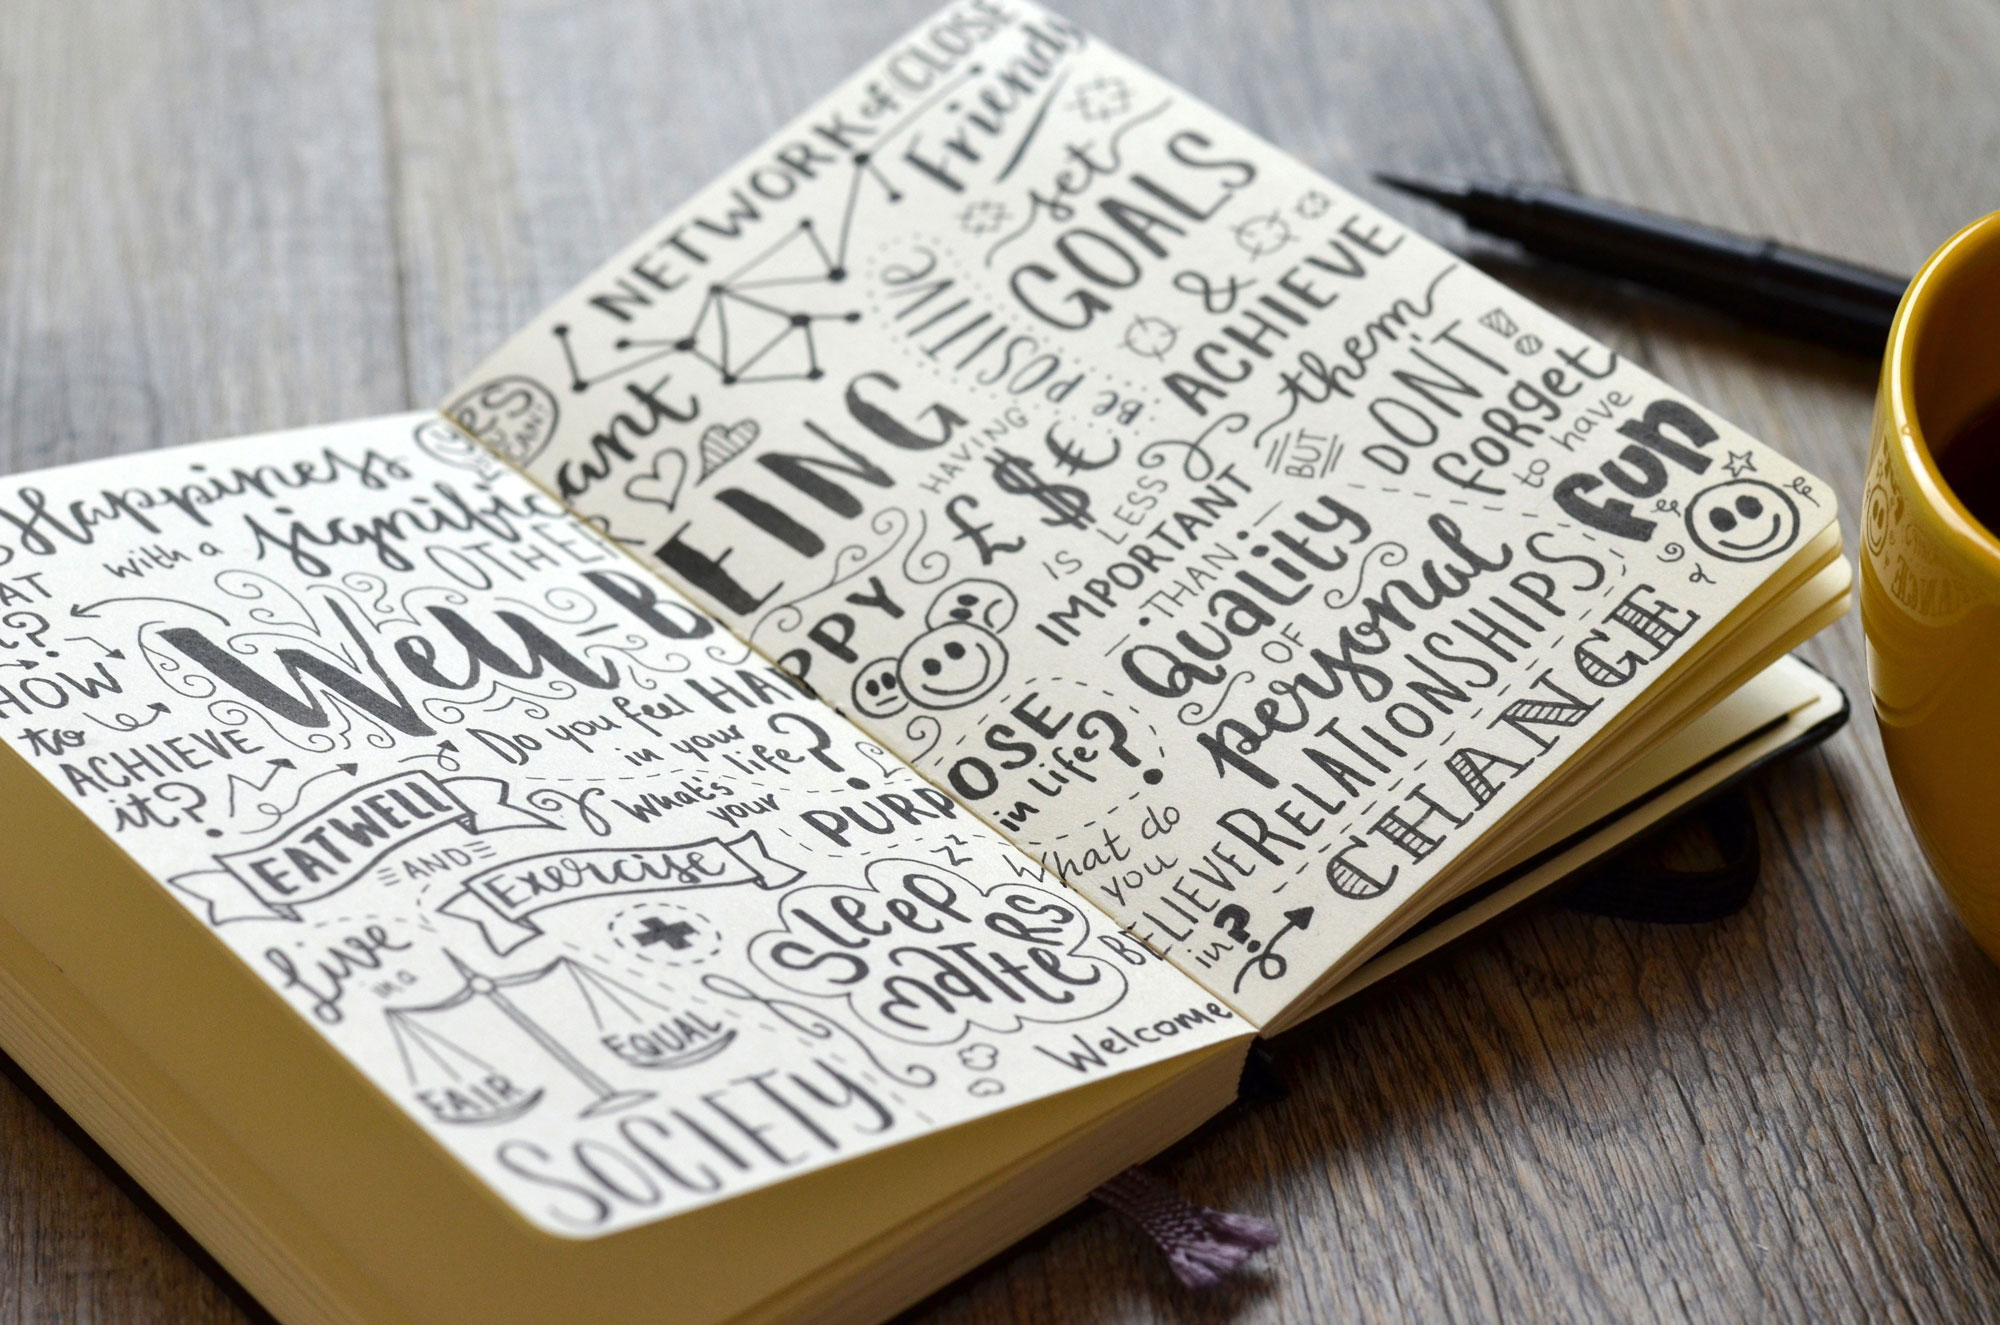 Happiness
with a significant
OTHER
NETWORK of CLOSE
Friends
HOW
to
ACHIEVE
it?
Well-BEING
BE POSITIVE
set
GOALS
&
ACHIEVE
them
BUT DON'T!
forget
to have
fun
Do you feel HAPPY
in your
life?
HAVING
£ $ €
IS LESS
IMPORTANT
-THAN-
Quality
OF
personal
RELATIONSHIPS
EATWELL
AND
Exercise
What's
your PURPOSE
in life?
What do
you
BELIEVE
in?
Live
in a
FAIR
EQUAL
SOCIETY
zz
Sleep
Matters
Welcome
CHANGE